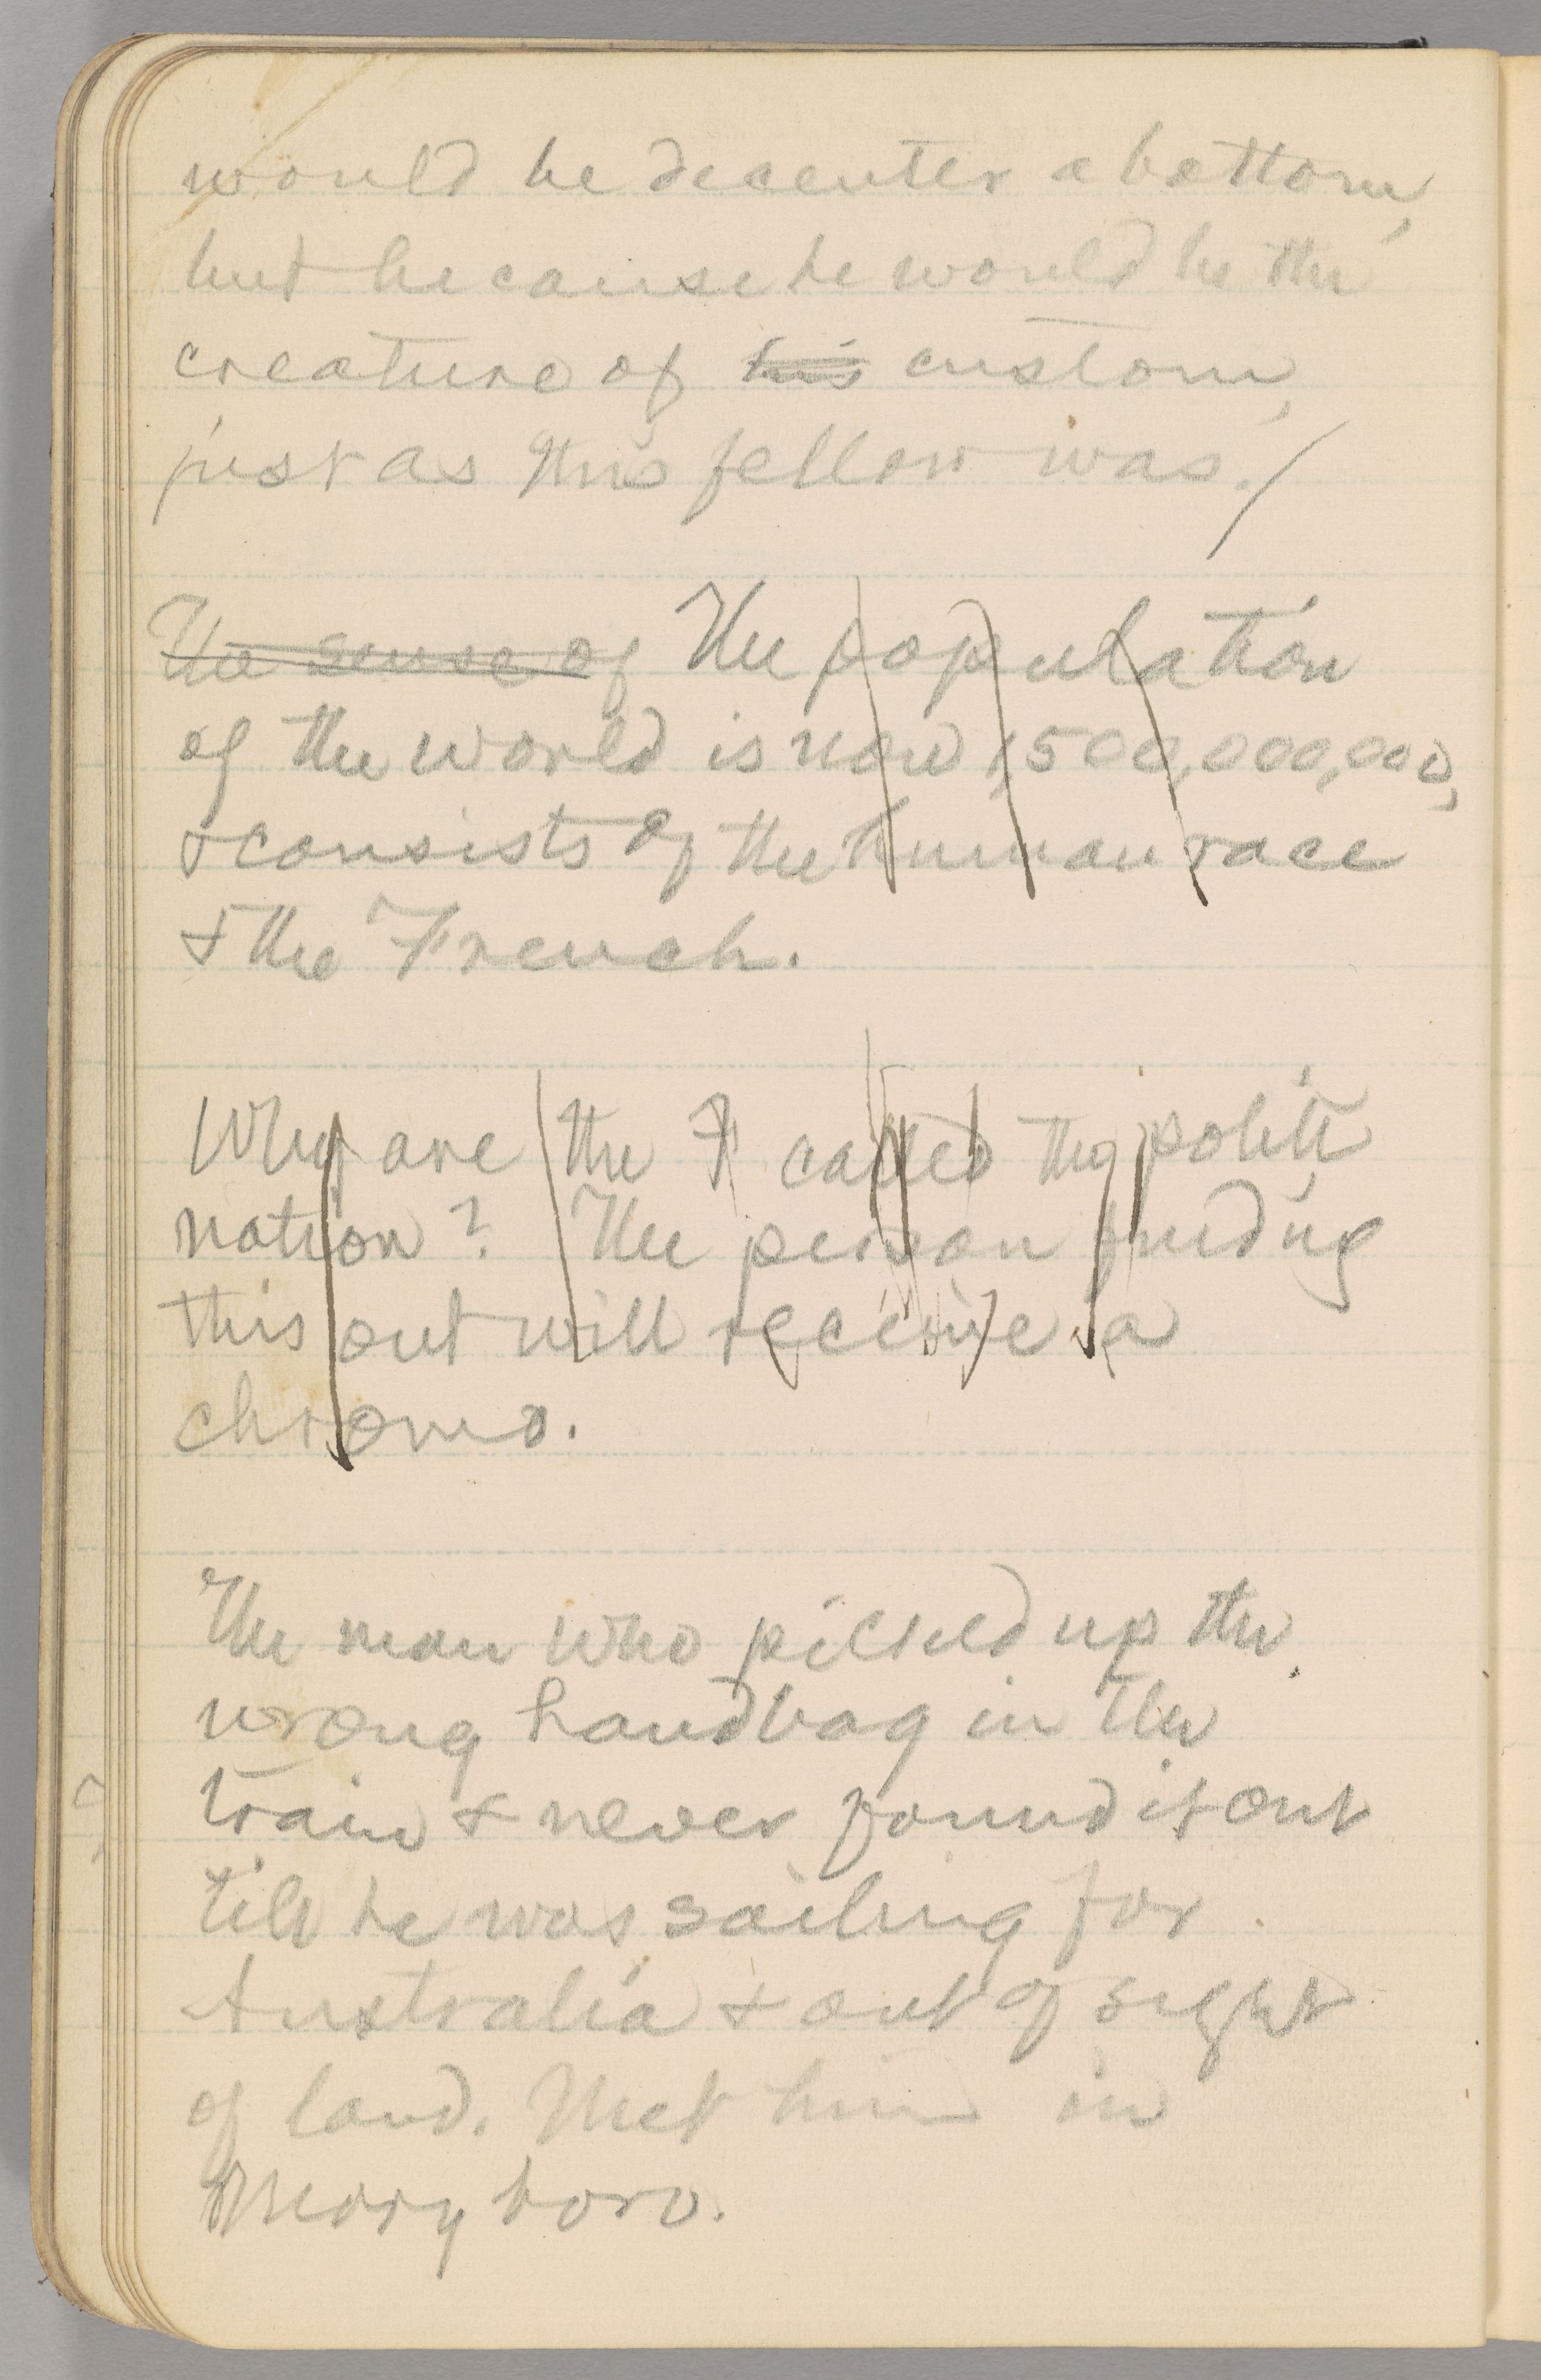 would be decenter a bottom,
but because he would be the
creature of his custom,
just as this fellow was./
The sense of The population
of the world is now 1,500,000,000,
& consists of the human race
& the French.
Why are the F called the polite
nation? The person finding
this out will receive a
chromo.
The man who picked up the
wrong handbag in the
train & never found it out
till he was sailing for
Australia & out of sight
of land. Met him in
Maryboro.